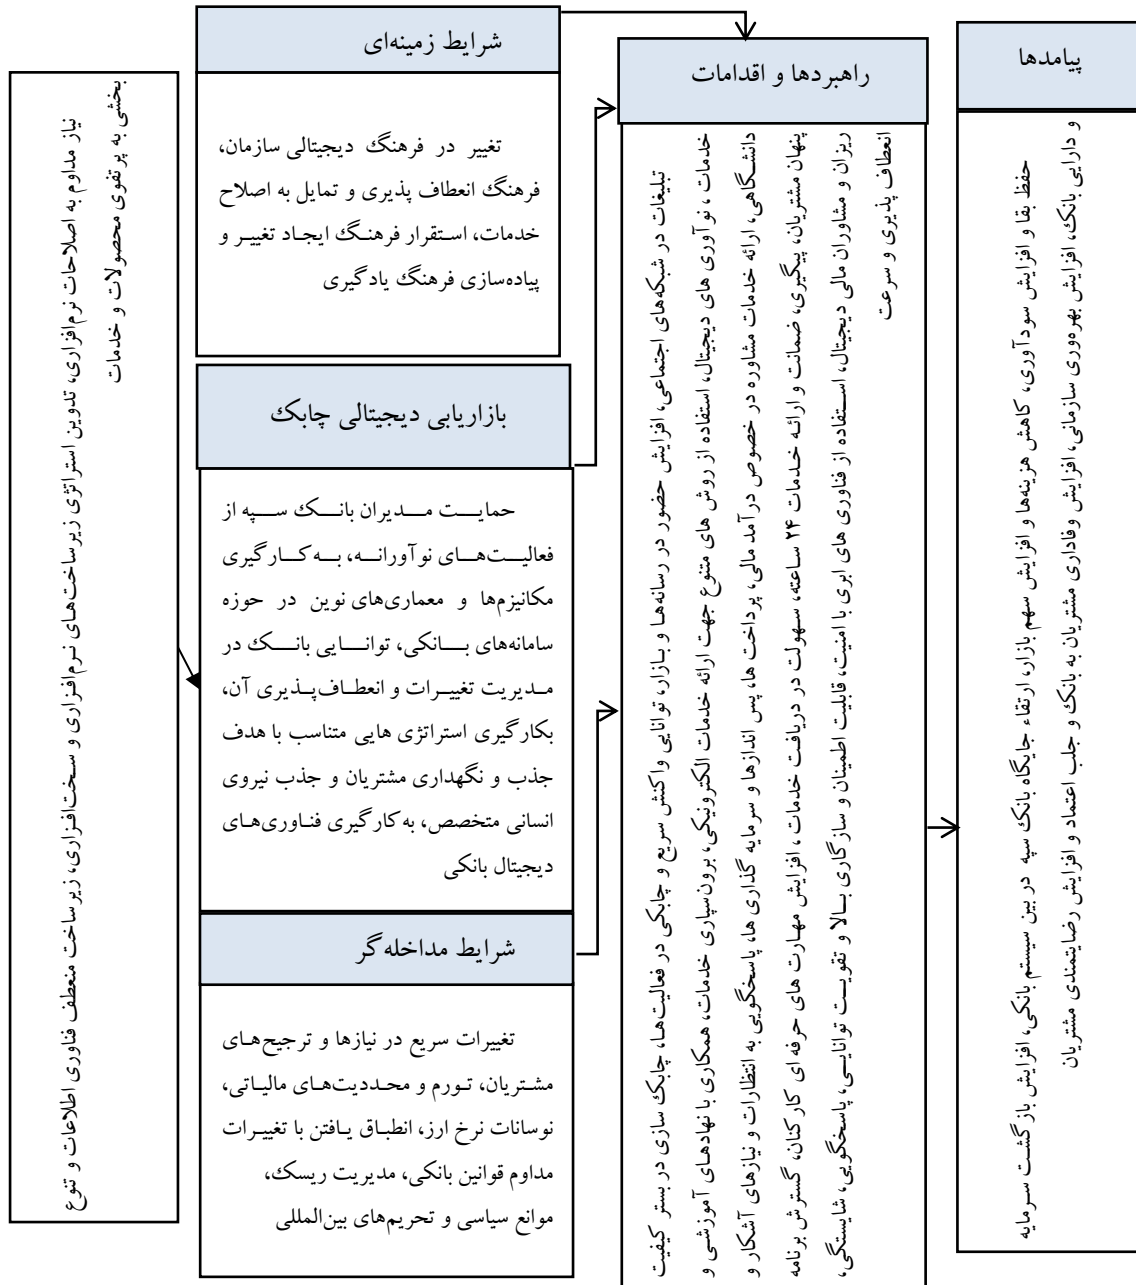 شرایط زمینه‌ای
تغییر در فرهنگ دیجیتالی سازمان،
فرهنگ انعطاف پذیری و تمایل به اصلاح
خدمات، استقرار فرهنگ ایجاد تغییر و
پیاده‌سازی فرهنگ یادگیری
بازاریابی دیجیتالی چابک
حمایت مدیران بانک سپه از
فعالیت‌های نوآورانه، به کارگیری
مکانیزم‌ها و معماری‌های نوین در حوزه
سامانه‌های بانکی، توانایی بانک در
مدیریت تغییرات و انعطاف‌پذیری آن،
بکارگیری استراتژی هایی متناسب با هدف
جذب و نگهداری مشتریان و جذب نیروی
انسانی متخصص، به کارگیری فناوری‌های
دیجیتال بانکی
شرایط مداخله گر
تغییرات سریع در نیازها و ترجیح‌های
مشتریان، تورم و محددیت‌های مالیاتی،
نوسانات نرخ ارز، انطباق یافتن با تغییرات
مداوم قوانین بانکی، مدیریت ریسک،
موانع سیاسی و تحریم‌های بین‌المللی
نیاز مداوم به اصلاحات نرم‌افزاری، تدوین استراتژی زیرساخت‌های نرم‌افزاری و سخت‌افزاری، زیرساخت منعطف فناوری اطلاعات و تنوع
بخشی به پرتفوی محصولات و خدمات
راهبردها و اقدامات
تبلیغات در شبکه‌های اجتماعی، افزایش حضور در رسانه‌ها و بازار، توانایی واکنش سریع و چابکی در فعالیت‌ها، چابک سازی در بستر کیفیت
خدمات ، نوآوری های دیجیتال، استفاده از روش های متنوع جهت ارائه خدمات الکترونیکی، برون‌سپاری خدمات، همکاری با نهادهای آموزشی و
دانشگاهی، ارائه خدمات مشاوره در خصوص درآمد مالی، پرداخت ها، پس اندازها و سرمایه گذاری ها، پاسخگویی به انتظارات و نیازهای آشکار و
پنهان مشتریان، پیگیری، ضمانت و ارائه خدمات ۲۴ ساعته، سهولت در دریافت خدمات ، افزایش مهارت های حرفه ای کارکنان، گسترش برنامه
ریزان و مشاوران مالی دیجیتال، استفاده از فناوری های ابری با امنیت، قابلیت اطمینان و سازگاری بالا و تقویت توانایی، پاسخگویی، شایستگی،
انعطاف پذیری و سرعت
پیامدها
حفظ بقا و افزایش سودآوری، کاهش هزینه‌ها و افزایش سهم بازار، ارتقاء جایگاه بانک سپه در بین سیستم بانکی، افزایش بازگشت سرمایه
و دارایی بانک، افزایش بهره‌وری سازمانی، افزایش وفاداری مشتریان به بانک و جلب اعتماد و افزایش رضایتمندی مشتریان